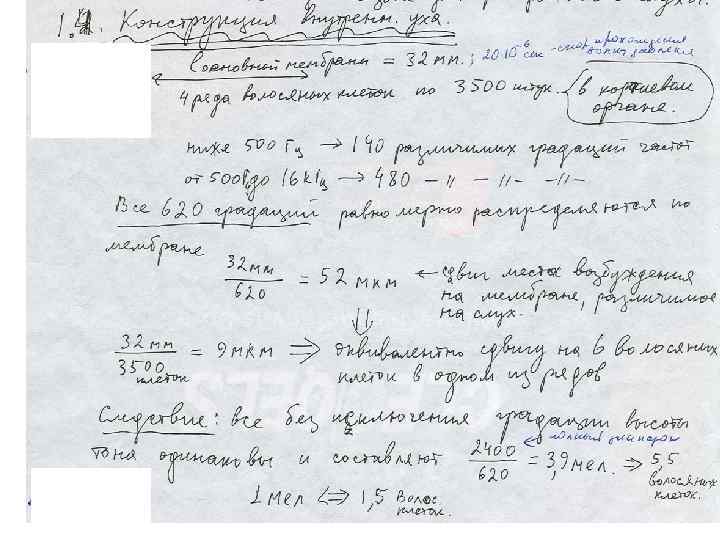 1.4. Конструкция внутренн. уха.
ℓ основной мембраны = 32 мм.; 20·10⁻⁶ сек - прохождения
4 ряда волосяных клеток по 3500 штук. в кортиевом
органе.
ниже 500 Гц → 140 различимых градаций частот
от 500Гц до 16 кГц → 480 — 〃 — 〃 — 〃 —
Все 620 градаций равномерно распределяются по
мембране
32 мм / 620 = 52 мкм ← сдвиг места возбуждения
на мембране, различимое
на слух.
32 мм / 3500 клеток = 9 мкм ⇒ эквивалентно сдвигу на 6 волосяных
клеток в одном из рядов
Следствие: все без исключения градации высоты
полный диапазон
тона одинаковы и составляют 2400 / 620 = 3,9 мел. ⇒ 5,5
волосяных
клеток.
1 мел ⇔ 1,5 волос.
клеток.